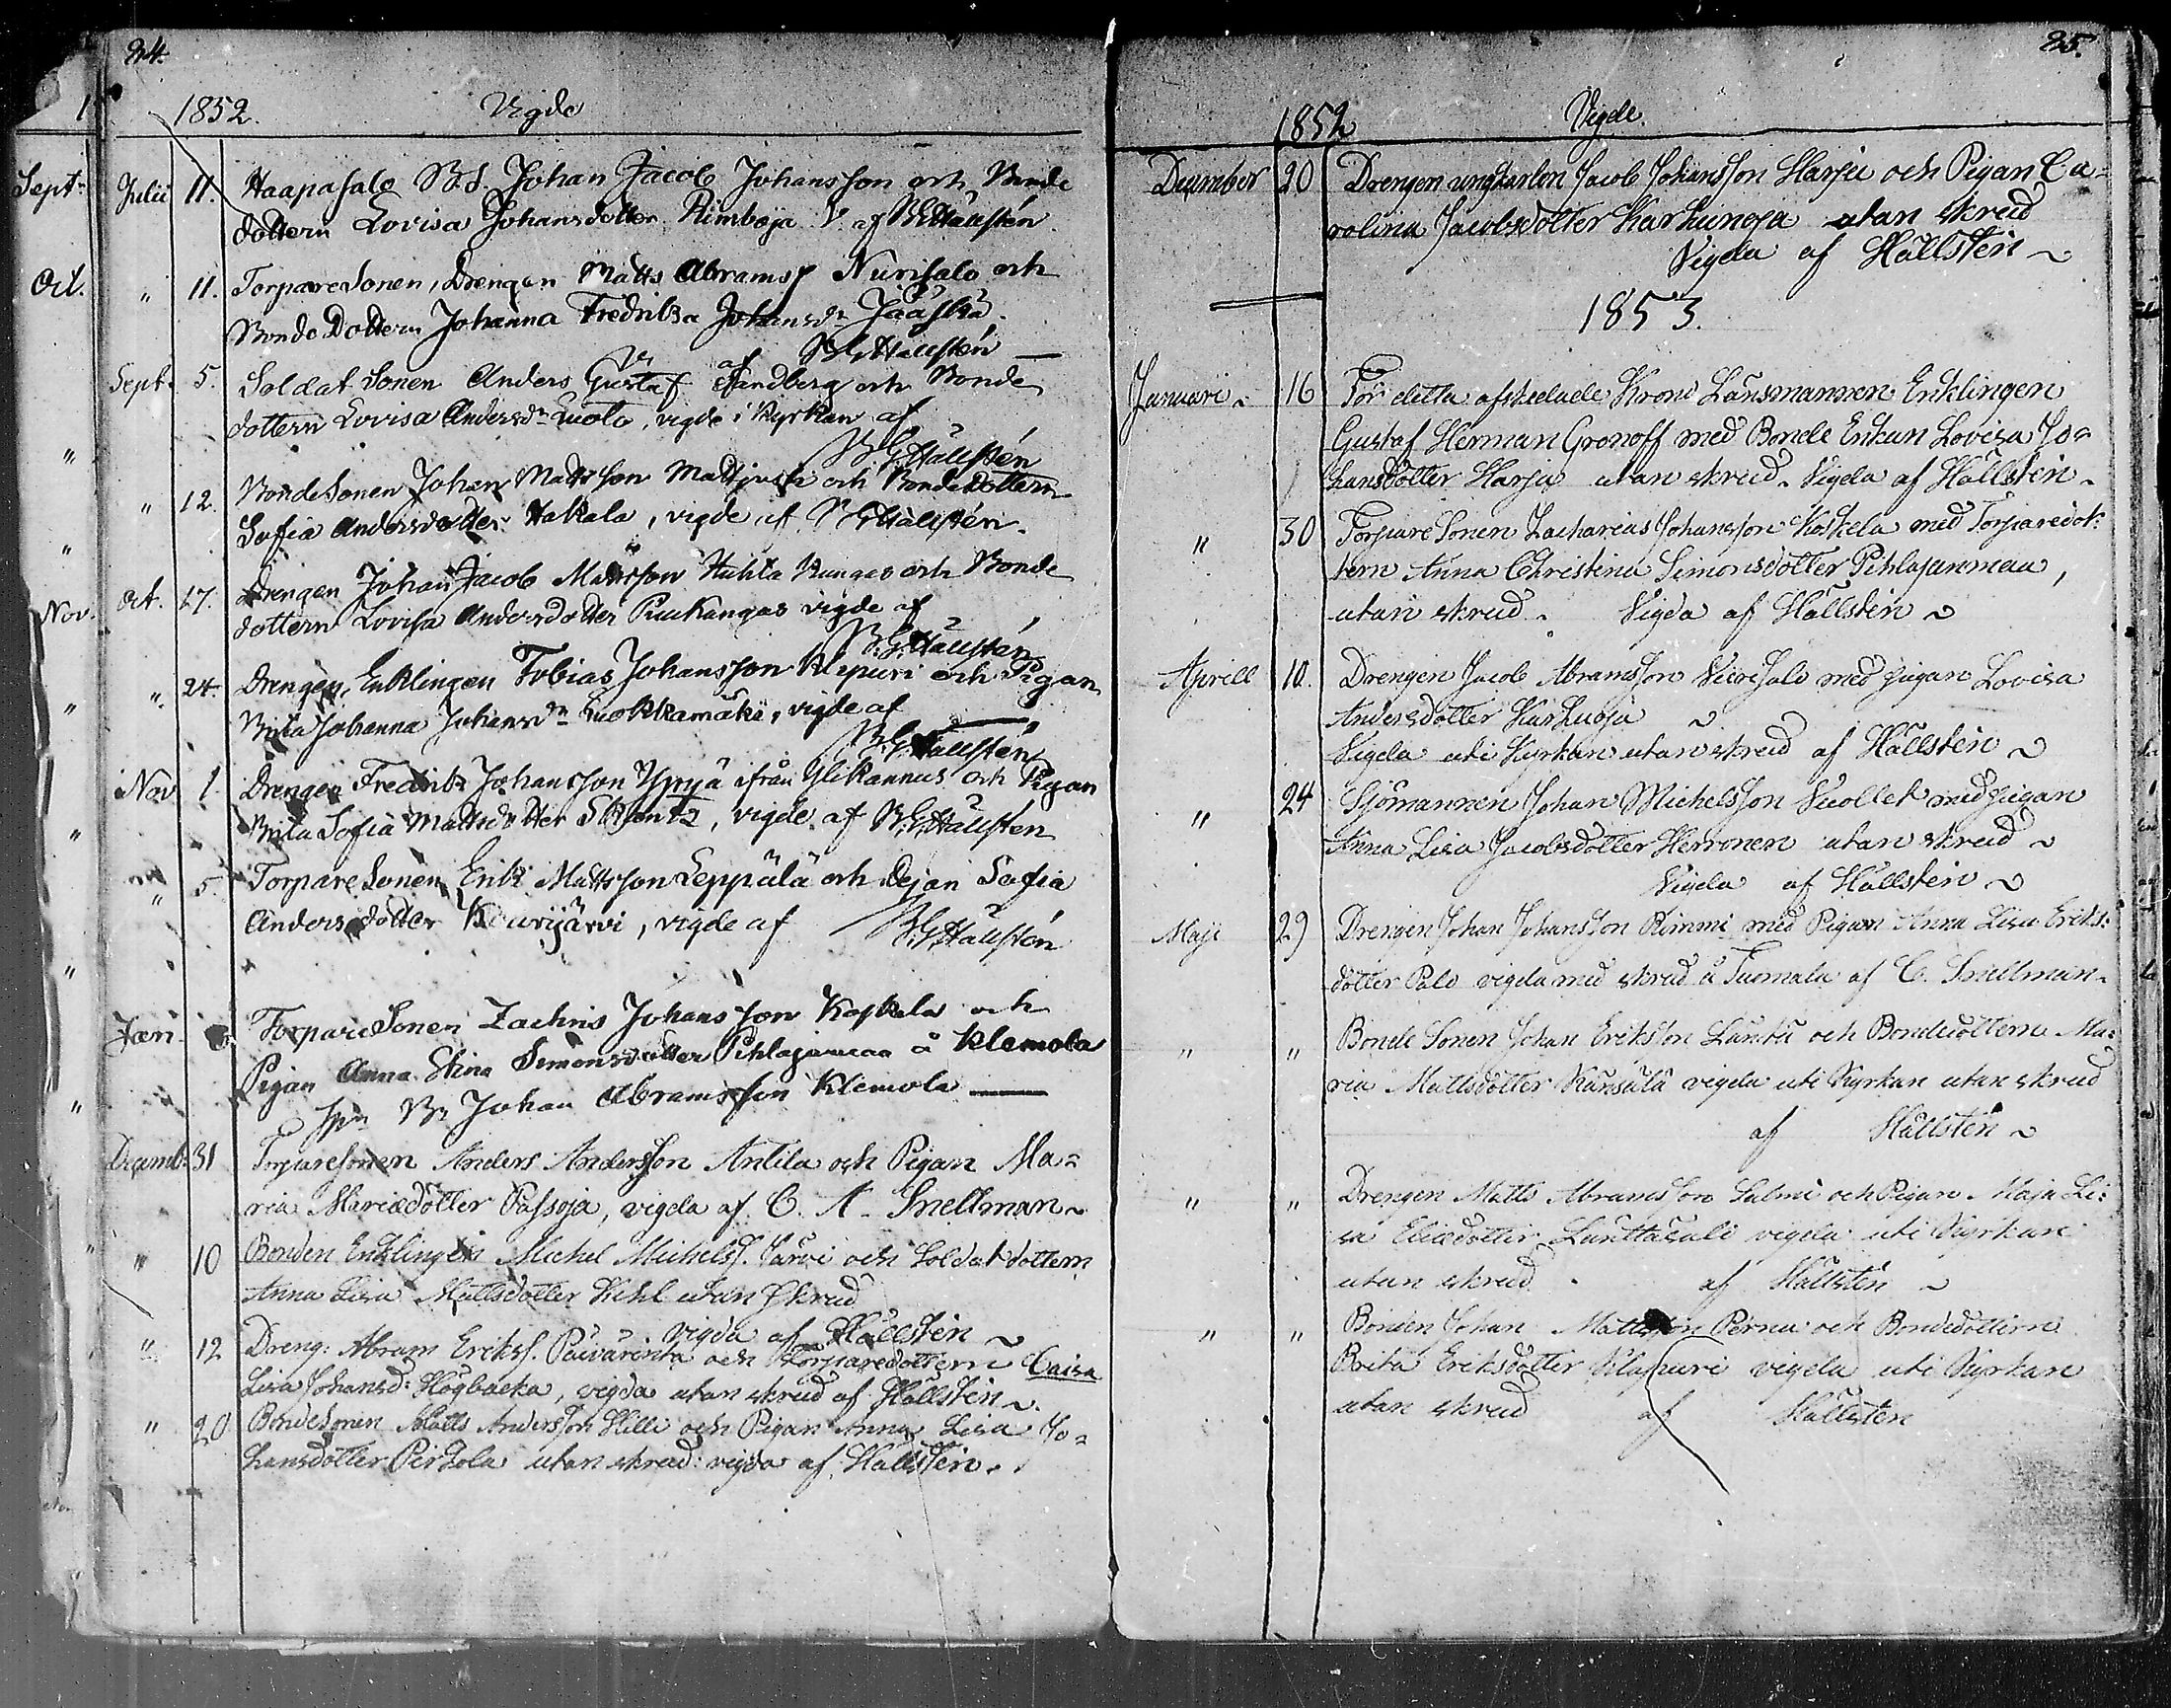 84.
1852. Vigde
Julii 11. Haapasalo B.S. Johan Jacob Johansson och Bonde
dottern Lovisa Johansdotter Rimboja V. af B.G. Hällstén
" 11. Torparesonen, Drengen Matts Abramss Nurisalo och
Bonde Dottern Johanna Fredrika Johansdr Jääskä.
V af B.G. Hällstén —
Sept. 5. Soldat Sonen Anders Gustaf Sandberg och Bonde
dottern Lovisa Andersdr Luoto, vigde i Kyrkan af
B.G. Hällstén
" 12. BondeSonen Johan Mattsson och Bondedottern
Sofia Andersdotter Hakala, vigde af B.G. Hällstén.
Oct. 17. Drengen Johan Jacob Mattsson Huhta Kangas och Bonde
dottern Lovisa Andersdotter Puukangas vigde af
B.G. Hällstén
". 24. Drengen, Enklingen Tobias Johansson Klapuri och Pigan
Brita Johanna Johansdr Luokkamäki, vigde af
B.G. Hällstén
Nov 1. Drengen Fredrik Johansson Ypryä ifrån Ylikannus och Pigan
Brita Sofia Mattsdotter, vigde af B.G. Hällsten
" 5. Torpare Sonen Erik Mattsson Leppälä och Pejan Sofia
Andersdotter Kourijärvi, vigde af B.G. Hällstén
Jan. TorpareSonen Zachris Johansson Koskela och
Pigan Anna Stina Simonsdotter Pihlajamaa å Klemola
Johan Abramsson Klemola —
Decemb: 31 Torparesonen Anders Andersson Antila och Pigan Ma=
ria Mariædotter Passoja, vigda af C. A. Snellman
" 10 Bonden Enklingen Michel Michelss. Järvi och Soldatdottern
Anna Lisa Mattsdotter Kihl utan Skrud
Vigda af Hällsten
" 12 Dreng: Abram Erikss. Päivärinta och Torparedottern Caisa
Lisa Johansd: Högbacka, vigda utan skrud af Hällsten
" 20 Bondesonen Matts Andersson Hilli och Pigan Anna Lisa Jo=
hansdotter Pirkola utan skrud: vigda af Hällsten.
Sept:
Oct.
"
"
Nov.
"
"
"
"
85.
1852 Vigde.
December 20 Drengen ungkarlen Jacob Johansson Harju och Pigan Ca=
rolina Jacobsdotter Karhunoja utan skrud
Vigda af Hällsten
1853.
Januari 16 För detta afskedade Krono Länsmannen Enklingen
Gustaf Herman Gronoff med Bonde Enkan Lovisa Jo=
hansdotter Harju utan skrud. Vigda af Hällsten.
" 30 Torpare Sonen Zacharias Johansson Koskela med Torparedot:
tern Anna Christina Simonsdotter Pihlajanmaa,
utan skrud. Vigda af Hällsten
Aprill 10. Drengen Jacob Abramsson Niirisalo med pigan Lovisa
Andersdotter Karhuoja
Vigda uti Kyrkan utan skrud af Hällsten
" 24 Sjömannen Johan Michelsson Vuollet med pigan
Anna Lisa Jacobsdotter Herronen utan skrud
Vigda af Hällsten
Maji 29 Drengen Johan Johansson Rimmi med Pigan Anna Lisa Eriks:
dotter Palo vigda med skrud å Tuomala af C. Snellman.
" " Bonde Sonen Johan Eriksson Länttä och Bondedottern Ma:
ria Mattsdotter Känsälä vigda uti Kyrkan utan skrud
af Hällsten
" " Drengen Matts Abramsson Salmi och Pigan Maja Li:
sa Eliædotter Lunttasalo vigda uti Kyrkan
utan skrud. af Hällsten
" " Bonden Johan Mattsson Pernu och Bondedottern
Brita Eriksdotter Klapuri vigda uti Kyrkan
utan skrud af Hällsten